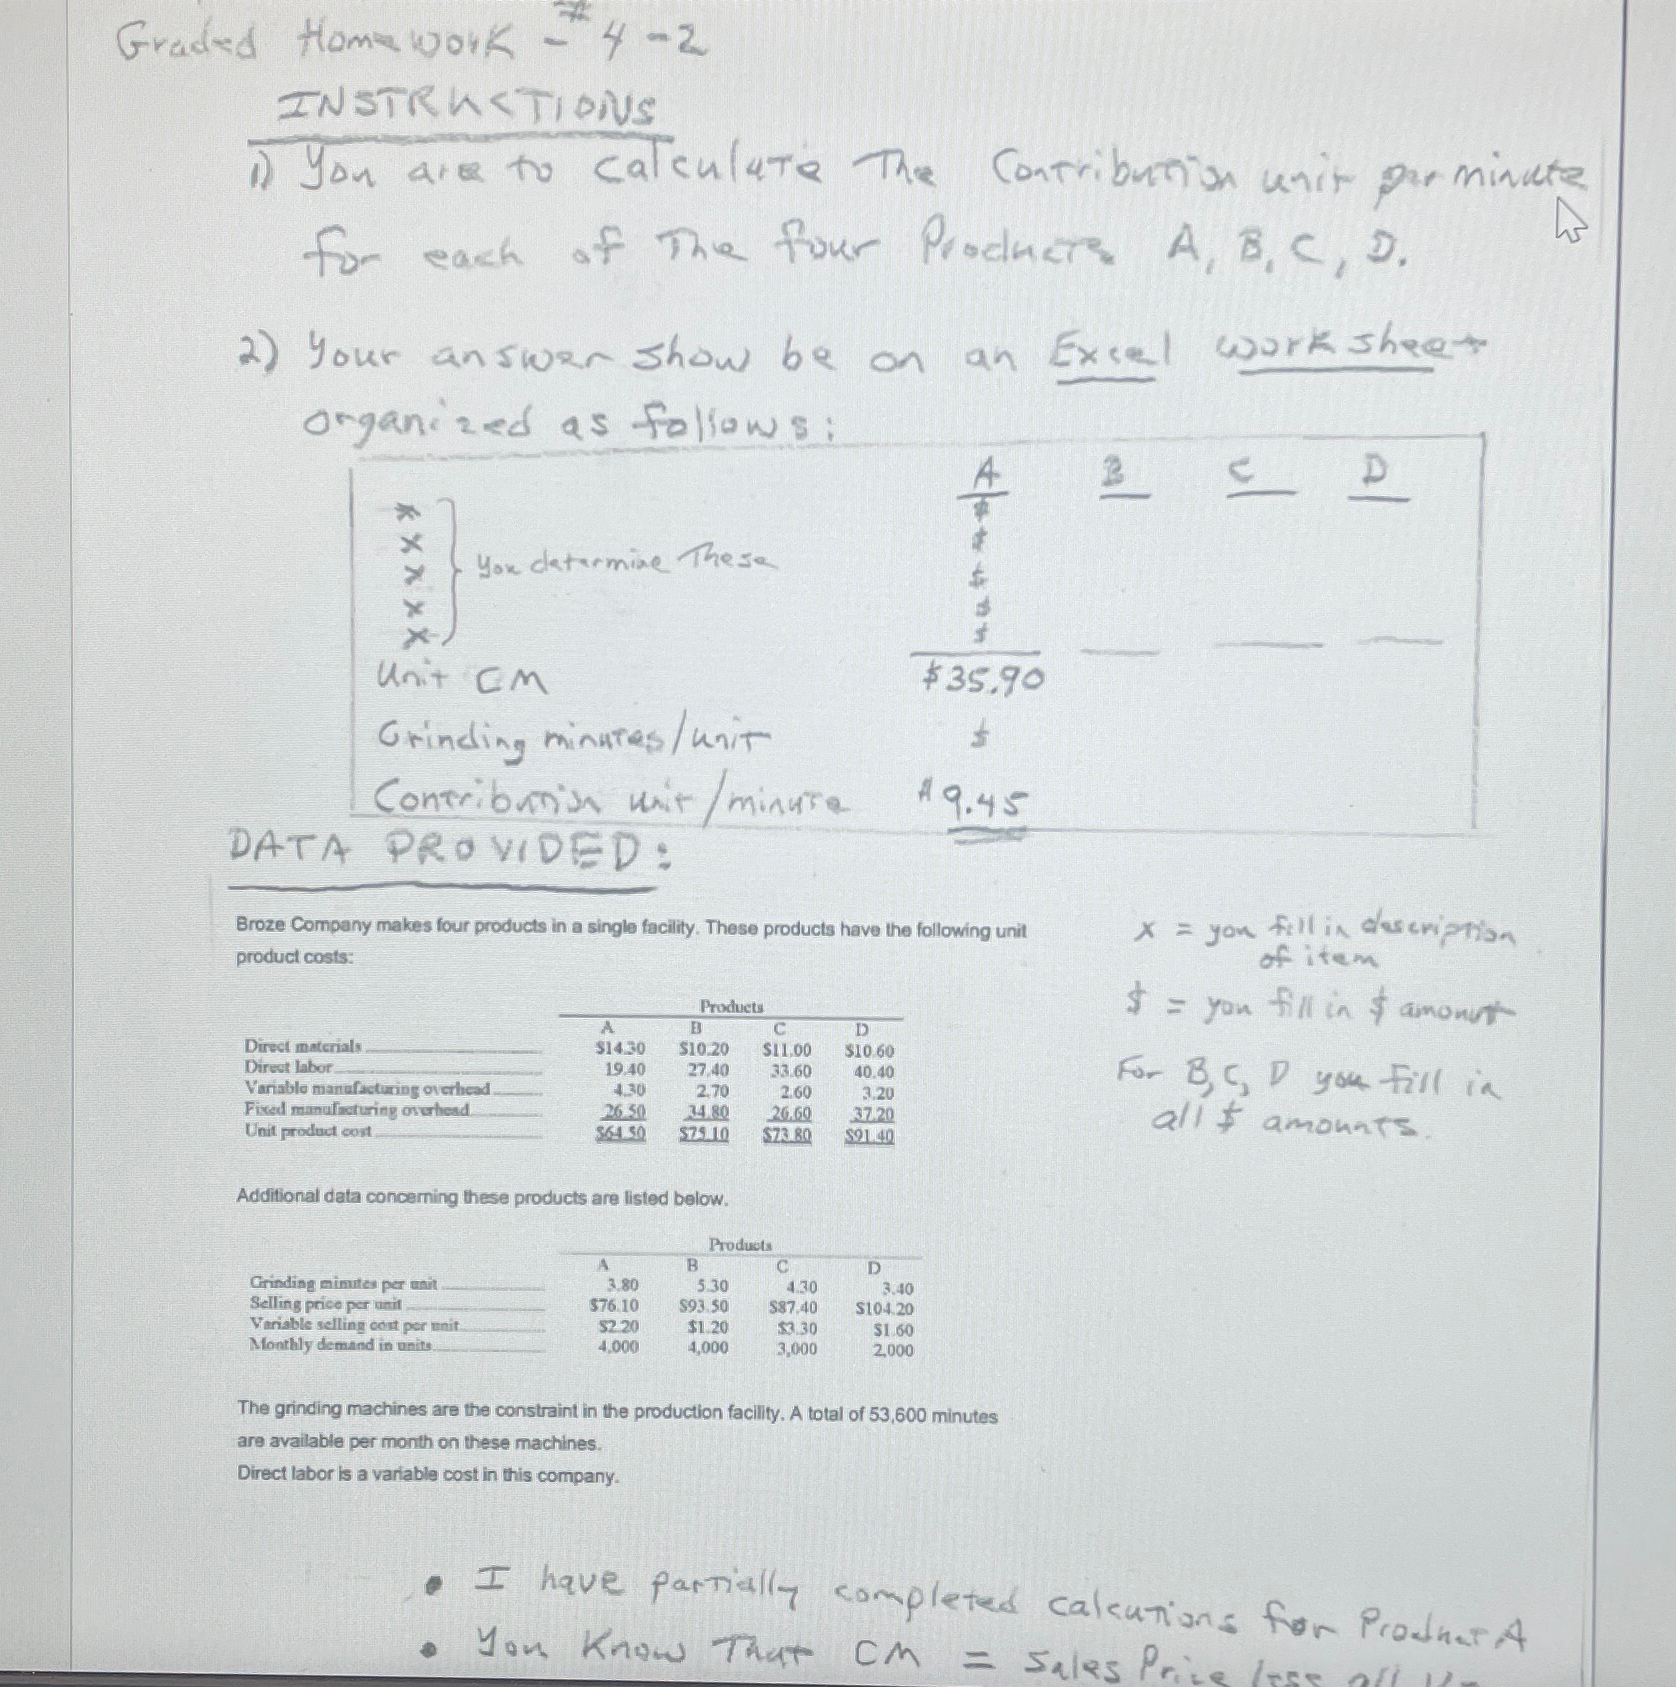 Graded Homework - #4-2
INSTRUCTIONS
1) You are to calculate The Contribution unit per minute
for each of The four Products A, B, C, D.
2) Your answer show be on an Excel worksheet
organized as follows:
A B C D
x $
x $
x } You determine These $
x $
x $
Unit CM $35.90
Grinding minutes/unit $
Contribution unit/minute $9.45
DATA PROVIDED:
Broze Company makes four products in a single facility. These products have the following unit
product costs:
x = you fill in description
of item
$ = you fill in $ amount
For B, C, D you fill in
all $ amounts.
Products
A B C D
Direct materials $14.30 $10.20 $11.00 $10.60
Direct labor 19.40 27.40 33.60 40.40
Variable manufacturing overhead 4.30 2.70 2.60 3.20
Fixed manufacturing overhead 26.50 34.80 26.60 37.20
Unit product cost $64.50 $75.10 $73.80 $91.40
Additional data concerning these products are listed below.
Products
A B C D
Grinding minutes per unit 3.80 5.30 4.30 3.40
Selling price per unit $76.10 $93.50 $87.40 $104.20
Variable selling cost per unit $2.20 $1.20 $3.30 $1.60
Monthly demand in units 4,000 4,000 3,000 2,000
The grinding machines are the constraint in the production facility. A total of 53,600 minutes
are available per month on these machines.
Direct labor is a variable cost in this company.
• I have partially completed calcutions for Product A
• You Know That CM = Sales Price less all